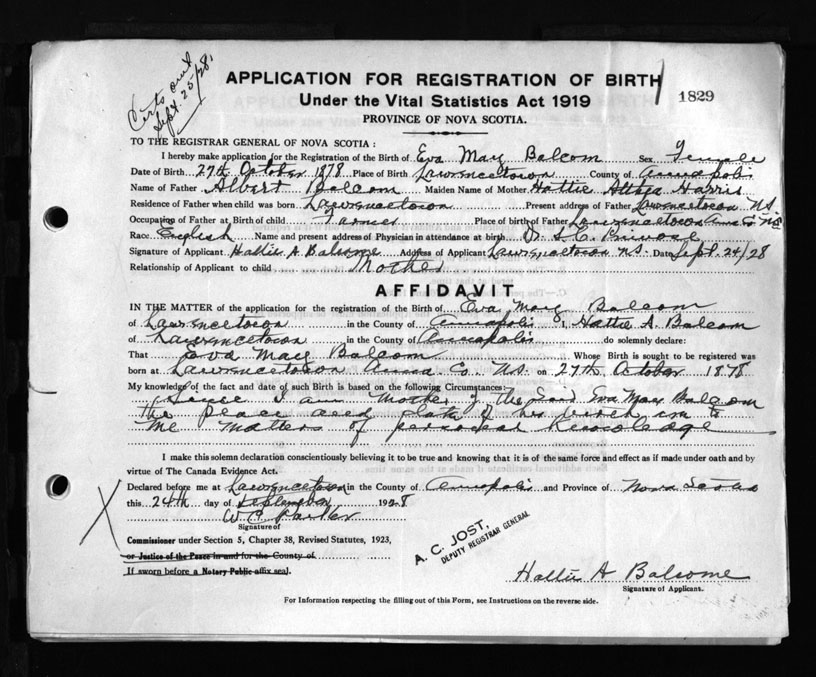 Certs out
Sept. 25/28.
APPLICATION FOR REGISTRATION OF BIRTH
1829
Under the Vital Statistics Act 1919
PROVINCE OF NOVA SCOTIA.
TO THE REGISTRAR GENERAL OF NOVA SCOTIA :
I hereby make application for the Registration of the Birth of Eva May Balcom Sex Female
Date of Birth 27th October 1878 Place of Birth Lawrencetown County of Annapolis
Name of Father Albert Balcom Maiden Name of Mother Hattie Harris
Residence of Father when child was born Lawrencetown Present address of Father Lawrencetown NS
Occupation of Father at Birth of child Farmer Place of birth of Father Lawrencetown NS
Race English Name and present address of Physician in attendance at birth Dr.
Signature of Applicant Hattie A Balcome Address of Applicant Lawrencetown NS. Date Sept. 24/28
Relationship of Applicant to child Mother
AFFIDAVIT
IN THE MATTER of the application for the registration of the Birth of Eva May Balcom
of Lawrencetown in the County of Annapolis I, Hattie A. Balcom
of Lawrencetown in the County of Annapolis do solemnly declare:
That Eva May Balcom Whose Birth is sought to be registered was
born at Lawrencetown Anna Co. NS. on 27th October 1878
My knowledge of the fact and date of such Birth is based on the following Circumstances:
Since I am mother of the Said Eva May Balcom
the place and date of her birth to
me matters of personal Knowledge
I make this solemn declaration conscientiously believing it to be true and knowing that it is of the same force and effect as if made under oath and by
virtue of The Canada Evidence Act.
Declared before me at Lawrencetown in the County of Annapolis and Province of Nova Scotia
this 24th day of September 1928
X
W C Parker
Signature of
Commissioner under Section 5, Chapter 38, Revised Statutes, 1923,
or Justice of the Peace in and for the County of
If sworn before a Notary Public affix seal.
A. C. JOST,
DEPUTY REGISTRAR GENERAL
Hattie A Balcome
Signature of Applicant.
For Information respecting the filling out of this Form, see Instructions on the reverse side.